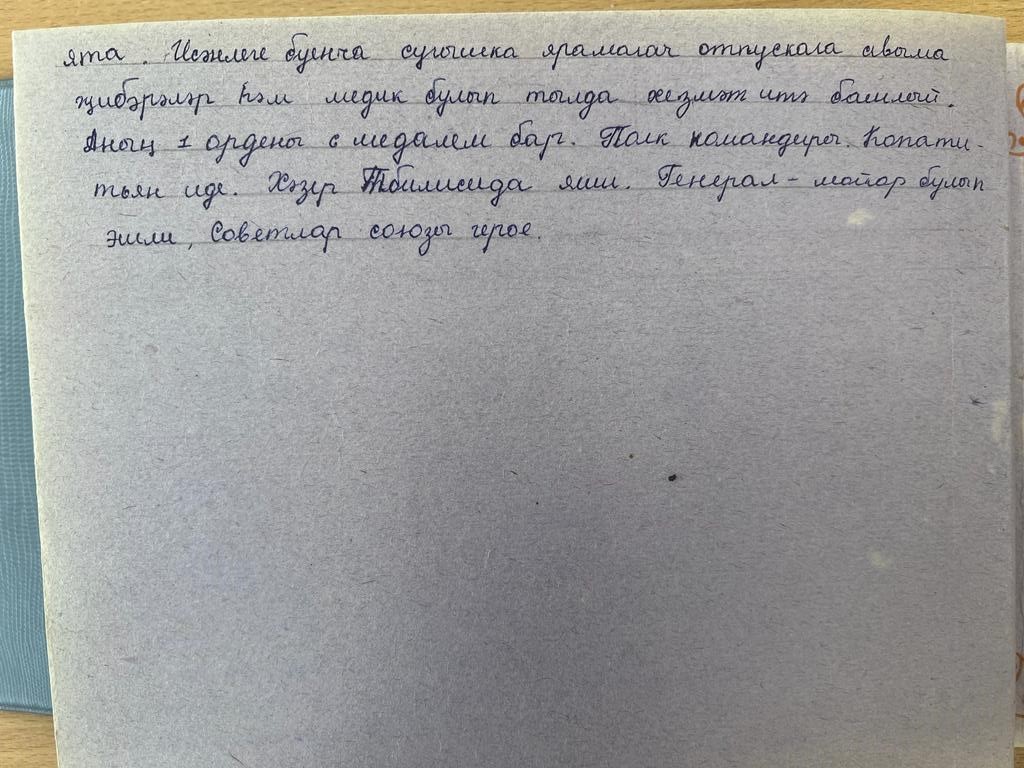 ята. Исәнлеге буенча сугышка ярамагач отпускага авыма
җибәрәләр һәм медик булып тылда хезмәт итә башлый.
Аның 1 ордены 6 медалем бар. Полк командиры. Копати-
тьян иде. Хәзер Тбилисида яши. Генерал-майор булып
эшли, Советлар союзы герое.